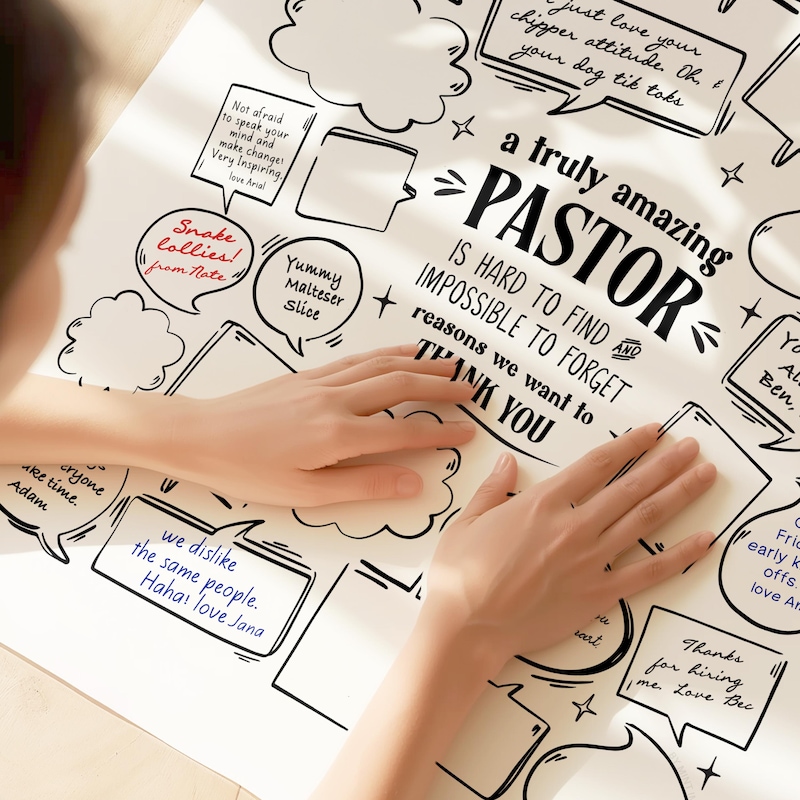 I just love your
chipper attitude. Oh, &
your dog tik toks
Not afraid
to speak your
mind and
make change!
Very Inspiring.
love Arial
a truly amazing
PASTOR
IS HARD TO FIND AND
IMPOSSIBLE TO FORGET
reasons we want to
THANK YOU
Snake
lollies!
from Nate
Yummy
Malteser
Slice
Ben,
time.
Adam
we dislike
the same people.
Haha! love Jana
early
offs.
love
Thanks
for hiring
me. Love Bec